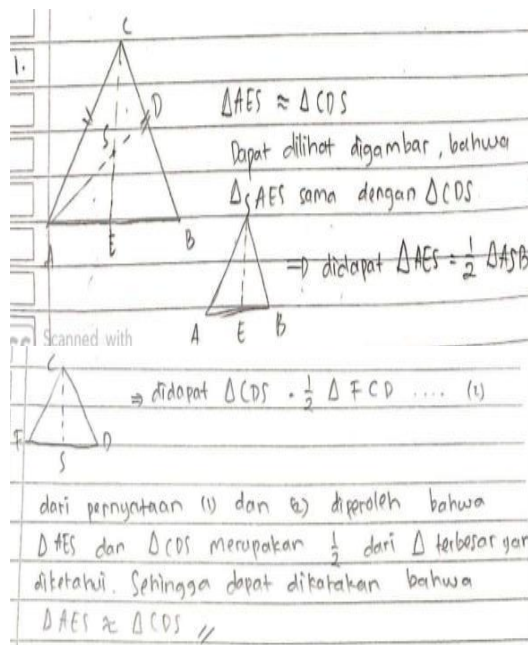 1.
C
D
S
A E B
ΔAES ≈ ΔCDS
Dapat dilihat digambar, bahwa
Δ AES sama dengan ΔCDS
S
A E B
⇒ didapat ΔAES = 1/2 ΔASB
Scanned with
C
F D
S
⇒ didapat ΔCDS = 1/2 Δ FCD .... (2)
dari pernyataan (1) dan (2) diperoleh bahwa
Δ AES dan ΔCDS merupakan 1/2 dari Δ terbesar yan
diketahui. Sehingga dapat dikatakan bahwa
Δ AES ≈ ΔCDS //